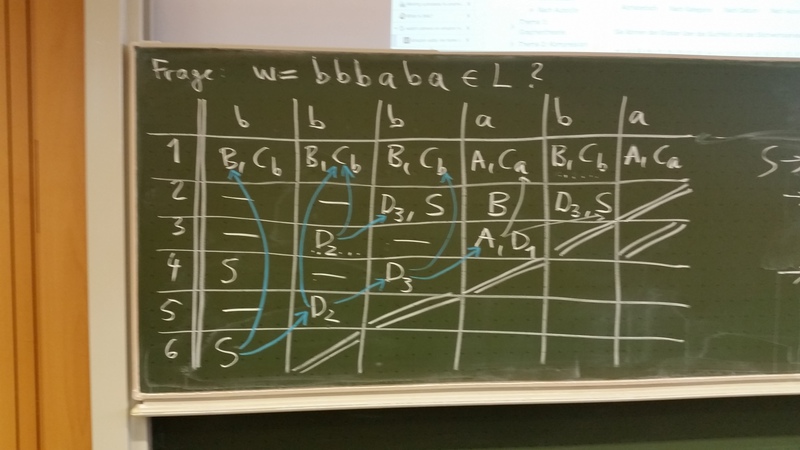 Frage: w = bbbaba ∈ L ?
b b b a b a
1 B, C_b B, C_b B, C_b A, C_a B, C_b A, C_a
2 — — D_3, S B D_3, S
3 — D_2 — A, D_1
4 S — D_3
5 — D_2
6 S
S →